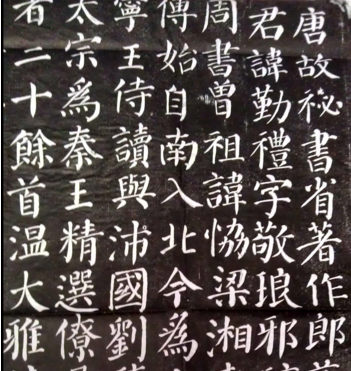 唐故祕書省著作郎
君諱勤禮字敬琅邪
周書曾祖諱恊梁湘
傳始自南入北今為
寧王侍讀與沛國劉
太宗為秦王精選僚
者二十餘首温大雅